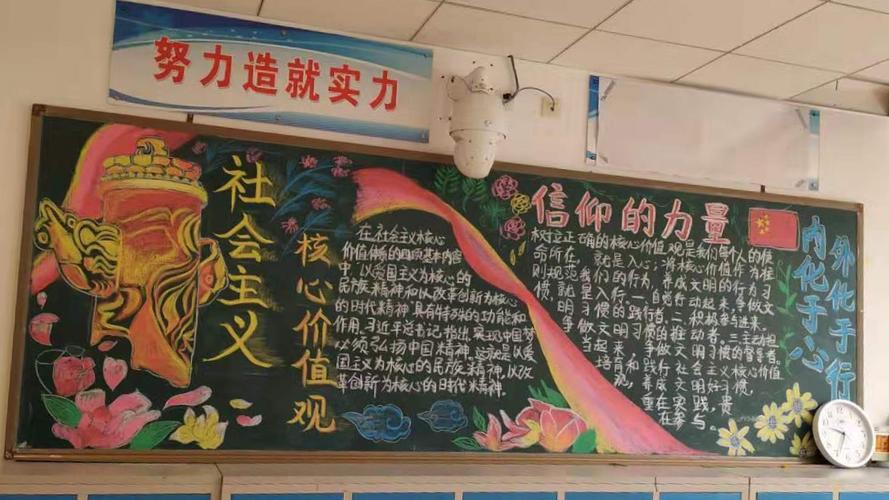 努力造就实力
社会主义
核心价值观
在社会主义核心
价值体系的四项基本内容
中,以爱国主义为核心的
民族精神和以改革创新为核心
的时代精神具有特殊的功能和
作用。习近平总书记指出,实现中国梦
必须弘扬中国精神,这就是以爱
国主义为核心的民族精神,以改
革创新为核心的时代精神。
信仰的力量
树立正确的核心价值观是我们每个人的使
命所在,就是入心:将核心价值作为准
则规范我们的行为,养成文明的行为习
惯,就是入行:一.自觉行动起来,争做文
明习惯的践行者;二.积极参与进来,
争做文明习惯的推动者。三.主动担
当起来,争做文明习惯的督导者。
培育和践行社会主义核心价值
观,养成文明好习惯,
重在实践,贵
在参与。
内化于心
外化于行